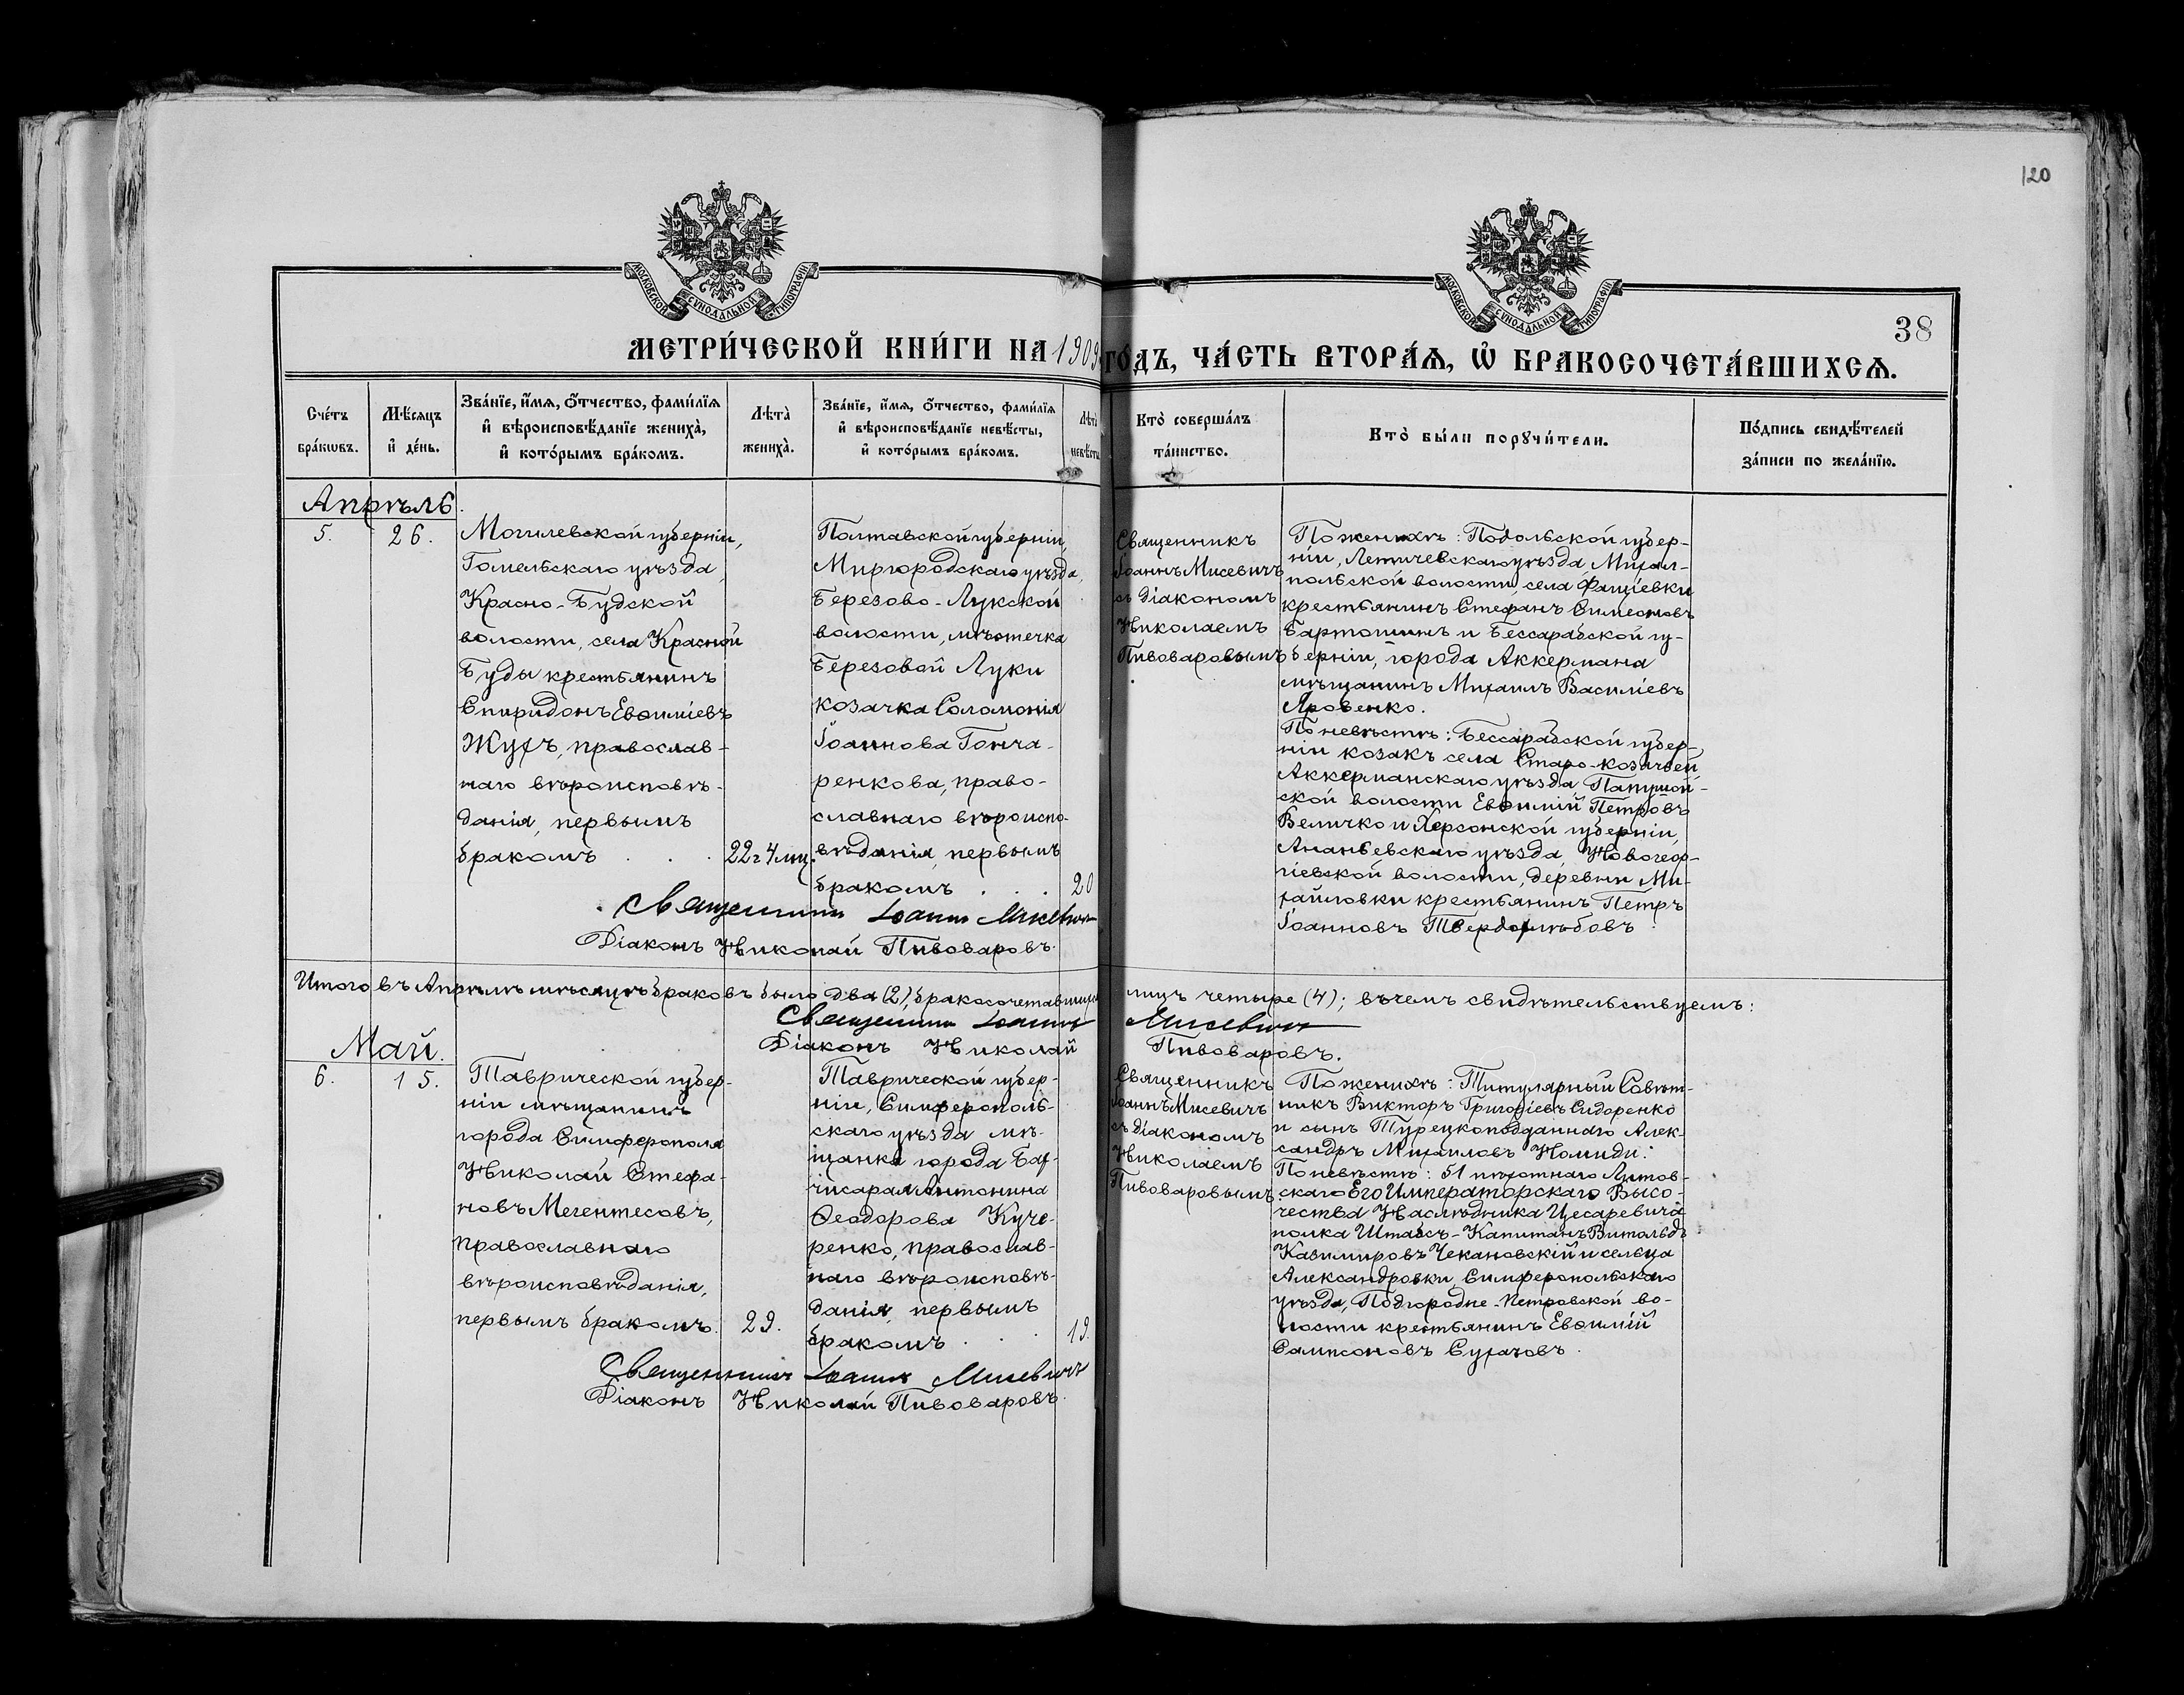 120
МОСКОВСКОЙ СУНОДАЛЬНОЙ ТИПОГРАФІИ
МОСКОВСКОЙ СУНОДАЛЬНОЙ ТИПОГРАФІИ
38
МЕТРИ́ЧЕСКОЙ КНИ́ГИ НА 1909 ГО́ДЪ, ЧА́СТЬ ВТОРА́Ѧ, Ѡ҆ БРАКОСОЧЕТА́ВШИХСѦ.
Сче́тъ
бра́кѡвъ.
Мѣ́сѧцъ
и҆ де́нь.
Зва́нїе, и҆́мѧ, ѻ҆́тчество, фами́лїѧ
и҆ вѣроисповѣ́данїе жениха̀,
и҆ кото́рымъ бра́комъ.
Лѣта̀
жениха̀.
Зва́нїе, и҆́мѧ, ѻ҆́тчество, фами́лїѧ
и҆ вѣроисповѣ́данїе невѣ́сты,
и҆ кото́рымъ бра́комъ.
Лѣта̀
невѣ́сты
Кто̀ соверша́лъ
та́инство.
Кто̀ бы́ли порꙋчи́тели.
По́дпись свидѣ́телей
за́писи по жела́нїю.
Апрѣль.
5.
26.
Могилевской губерніи,
Гомельскаго уѣзда,
Красно-Будской
волости, села Красной
Буды крестьянинъ
Спиридонъ Евѳиміевъ
Жухъ, православ-
наго вѣроисповѣ-
данія, первымъ
бракомъ . . .
22 г 4 мц.
Полтавской губерніи,
Миргородскаго уѣзда,
Березово-Лукской
волости, мѣстечка
Березовой Луки
козачка Соломонія
Іоаннова Гонча-
ренкова, право-
славнаго вѣроиспо-
вѣданія, первымъ
бракомъ . . .
20
Священникъ
Іоаннъ Мисевичъ
съ діакономъ
Николаемъ
Пивоваровымъ
По женихѣ: Подольской губер-
ніи, Летичевскаго уѣзда, Михал-
польской волости, села Фащіевки
крестьянинъ Стефанъ Симеоновъ
Бартошинъ и Бессарабской гу-
берніи, города Аккермана
мѣщанинъ Михаилъ Василіевъ
Яровенко.
По невѣстѣ: Бессарабской губер-
ніи козакъ села Старо-козачьей,
Аккерманскаго уѣзда,
ской волости Евѳимій Петровъ
Величко и Херсонской губерніи,
Ананьевскаго уѣзда, Новогеор-
гіевской волости, деревни Ми-
хайловки крестьянинъ Петръ
Іоанновъ Твердохлѣбовъ.
Священникъ Іоаннъ Мисевичъ
Діаконъ Николай Пивоваровъ.
Итого въ Апрѣлѣ мѣсяцѣ браковъ было два (2), бракосочетавшихся лицъ четыре (4); въ чемъ свидѣтельствуемъ:
Священникъ Іоаннъ Мисевичъ
Діаконъ Николай Пивоваровъ.
Май.
6.
15.
Таврической губер-
ніи мѣщанинъ
города Симферополя
Николай Стефа-
новъ Мегентесовъ,
православнаго
вѣроисповѣданія,
первымъ бракомъ.
29.
Таврической губер-
ніи, Симферополь-
скаго уѣзда мѣ-
щанка города Бах-
чисарая Антонина
Ѳеодорова Куче-
ренко, православ-
наго вѣроисповѣ-
данія, первымъ
бракомъ . . .
19.
Священникъ
Іоаннъ Мисевичъ
съ діакономъ
Николаемъ
Пивоваровымъ
По женихѣ: Титулярный Совѣт-
никъ Викторъ Григоріевъ Сидоренко
и сынъ Турецкоподданнаго Алек-
сандръ Михаиловъ Номиди.
По невѣстѣ: 51 пѣхотнаго Литов-
скаго Его Императорскаго Высо-
чества Наслѣдника Цесаревича
полка Штабсъ-Капитанъ Витольдъ
Казимировъ Чекановскій и сельца
Александровки, Симферопольскаго
уѣзда, Подгородне-Петровской во-
лости крестьянинъ Евѳимій
Сампсоновъ Сухачовъ.
Священникъ Іоаннъ Мисевичъ
Діаконъ Николай Пивоваровъ.